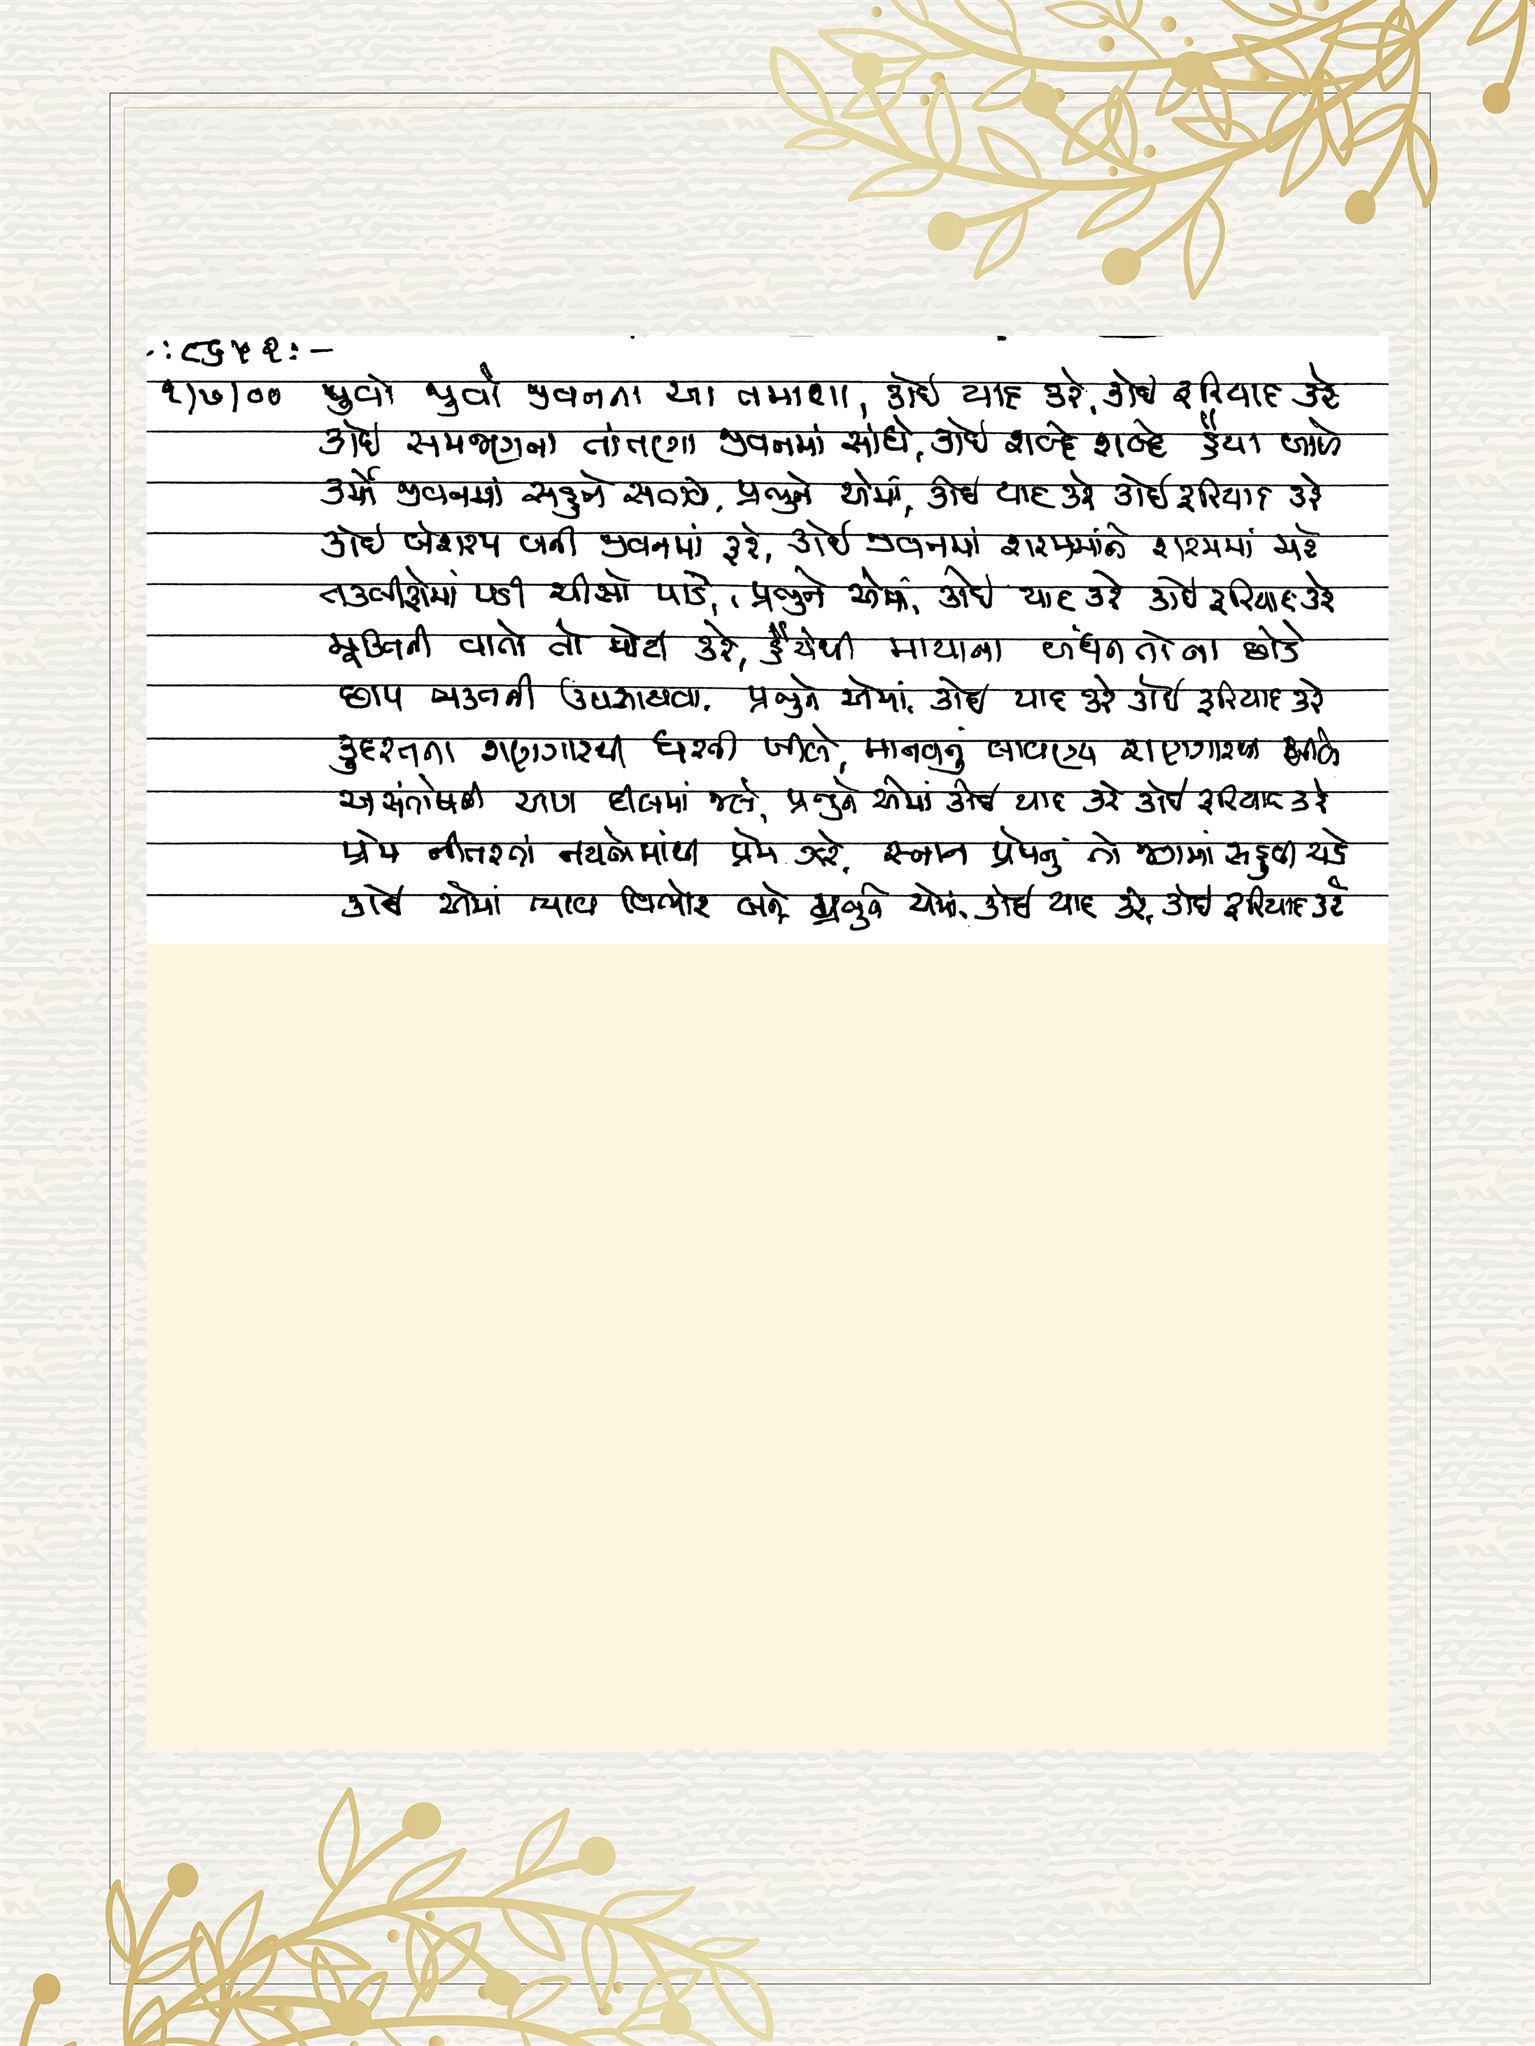 -:૮૬૫૨:-
૨/૭/૦૦ જુવો જુવો જીવનના આ તમાશા, કોઈ યાદ કરે, કોઈ ફરિયાદ કરે
કોઈ સમજણના તાંતણા જીવનમાં સાંધે, કોઈ શબ્દે શબ્દે હૈયા બાળે
કર્મે જીવનમાં સહુને સતાવે, પ્રભુને એમાં, કોઈ યાદ કરે કોઈ ફરિયાદ કરે
કોઈ બેશરમ બની જીવનમાં ફરે, કોઈ જીવનમાં શરમમાંને શરમમાં મરે
તકલીફોમાં પડી ચીસો પાડે, પ્રભુને એમાં, કોઈ યાદ કરે કોઈ ફરિયાદ કરે
મૂક્તિની વાતો તો મોટી કરે, હૈયેથી માયાના બંધન તો ના છોડે
છાપ ભક્તની ઉપસાવવા, પ્રભુને એમાં, કોઈ યાદ કરે કોઈ ફરિયાદ કરે
કુદરતના શણગારથી ધરતી ખીલે, માનવનું લાવણ્ય શણગારથી ખીલે
અસંતોષની આગ દીલમાં જલે, પ્રભુને એમાં કોઈ યાદ કરે કોઈ ફરિયાદ કરે
પ્રેમ નીતરતાં નયનોમાંથી પ્રેમ ઝરે, સ્નાન પ્રેમનું તો જગમાં સહુને ગમે
કોઈ એમાં ભાવ વિભોર બને, પ્રભુને એમાં, કોઈ યાદ કરે, કોઈ ફરિયાદ કરે